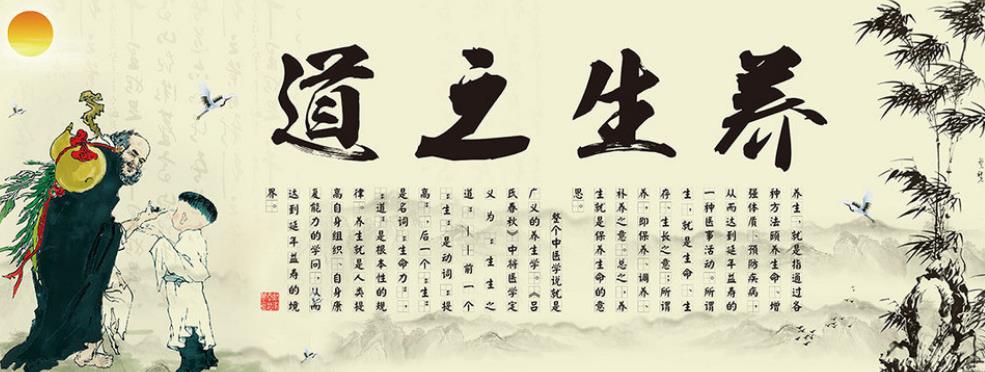 养生之道
养生，就是指通过各
种方法颐养生命、增
强体质、预防疾病，
从而达到延年益寿的
一种医事活动。所谓
生，就是生命、生
存、生长之意；所谓
养，即保养、调养、
补养之意。总之，养
生就是保养生命的意
思。
整个中医学说就是
广义的养生学。《吕
氏春秋》中将医学定
义为“生生之
道”——前一个
“生”是动词“提
高”，后一个“生”
是名词“生命力”，
“道”是根本性的规
律。养生就是人类提
高自身组织、自身康
复能力的学问，从而
达到延年益寿的境
界。